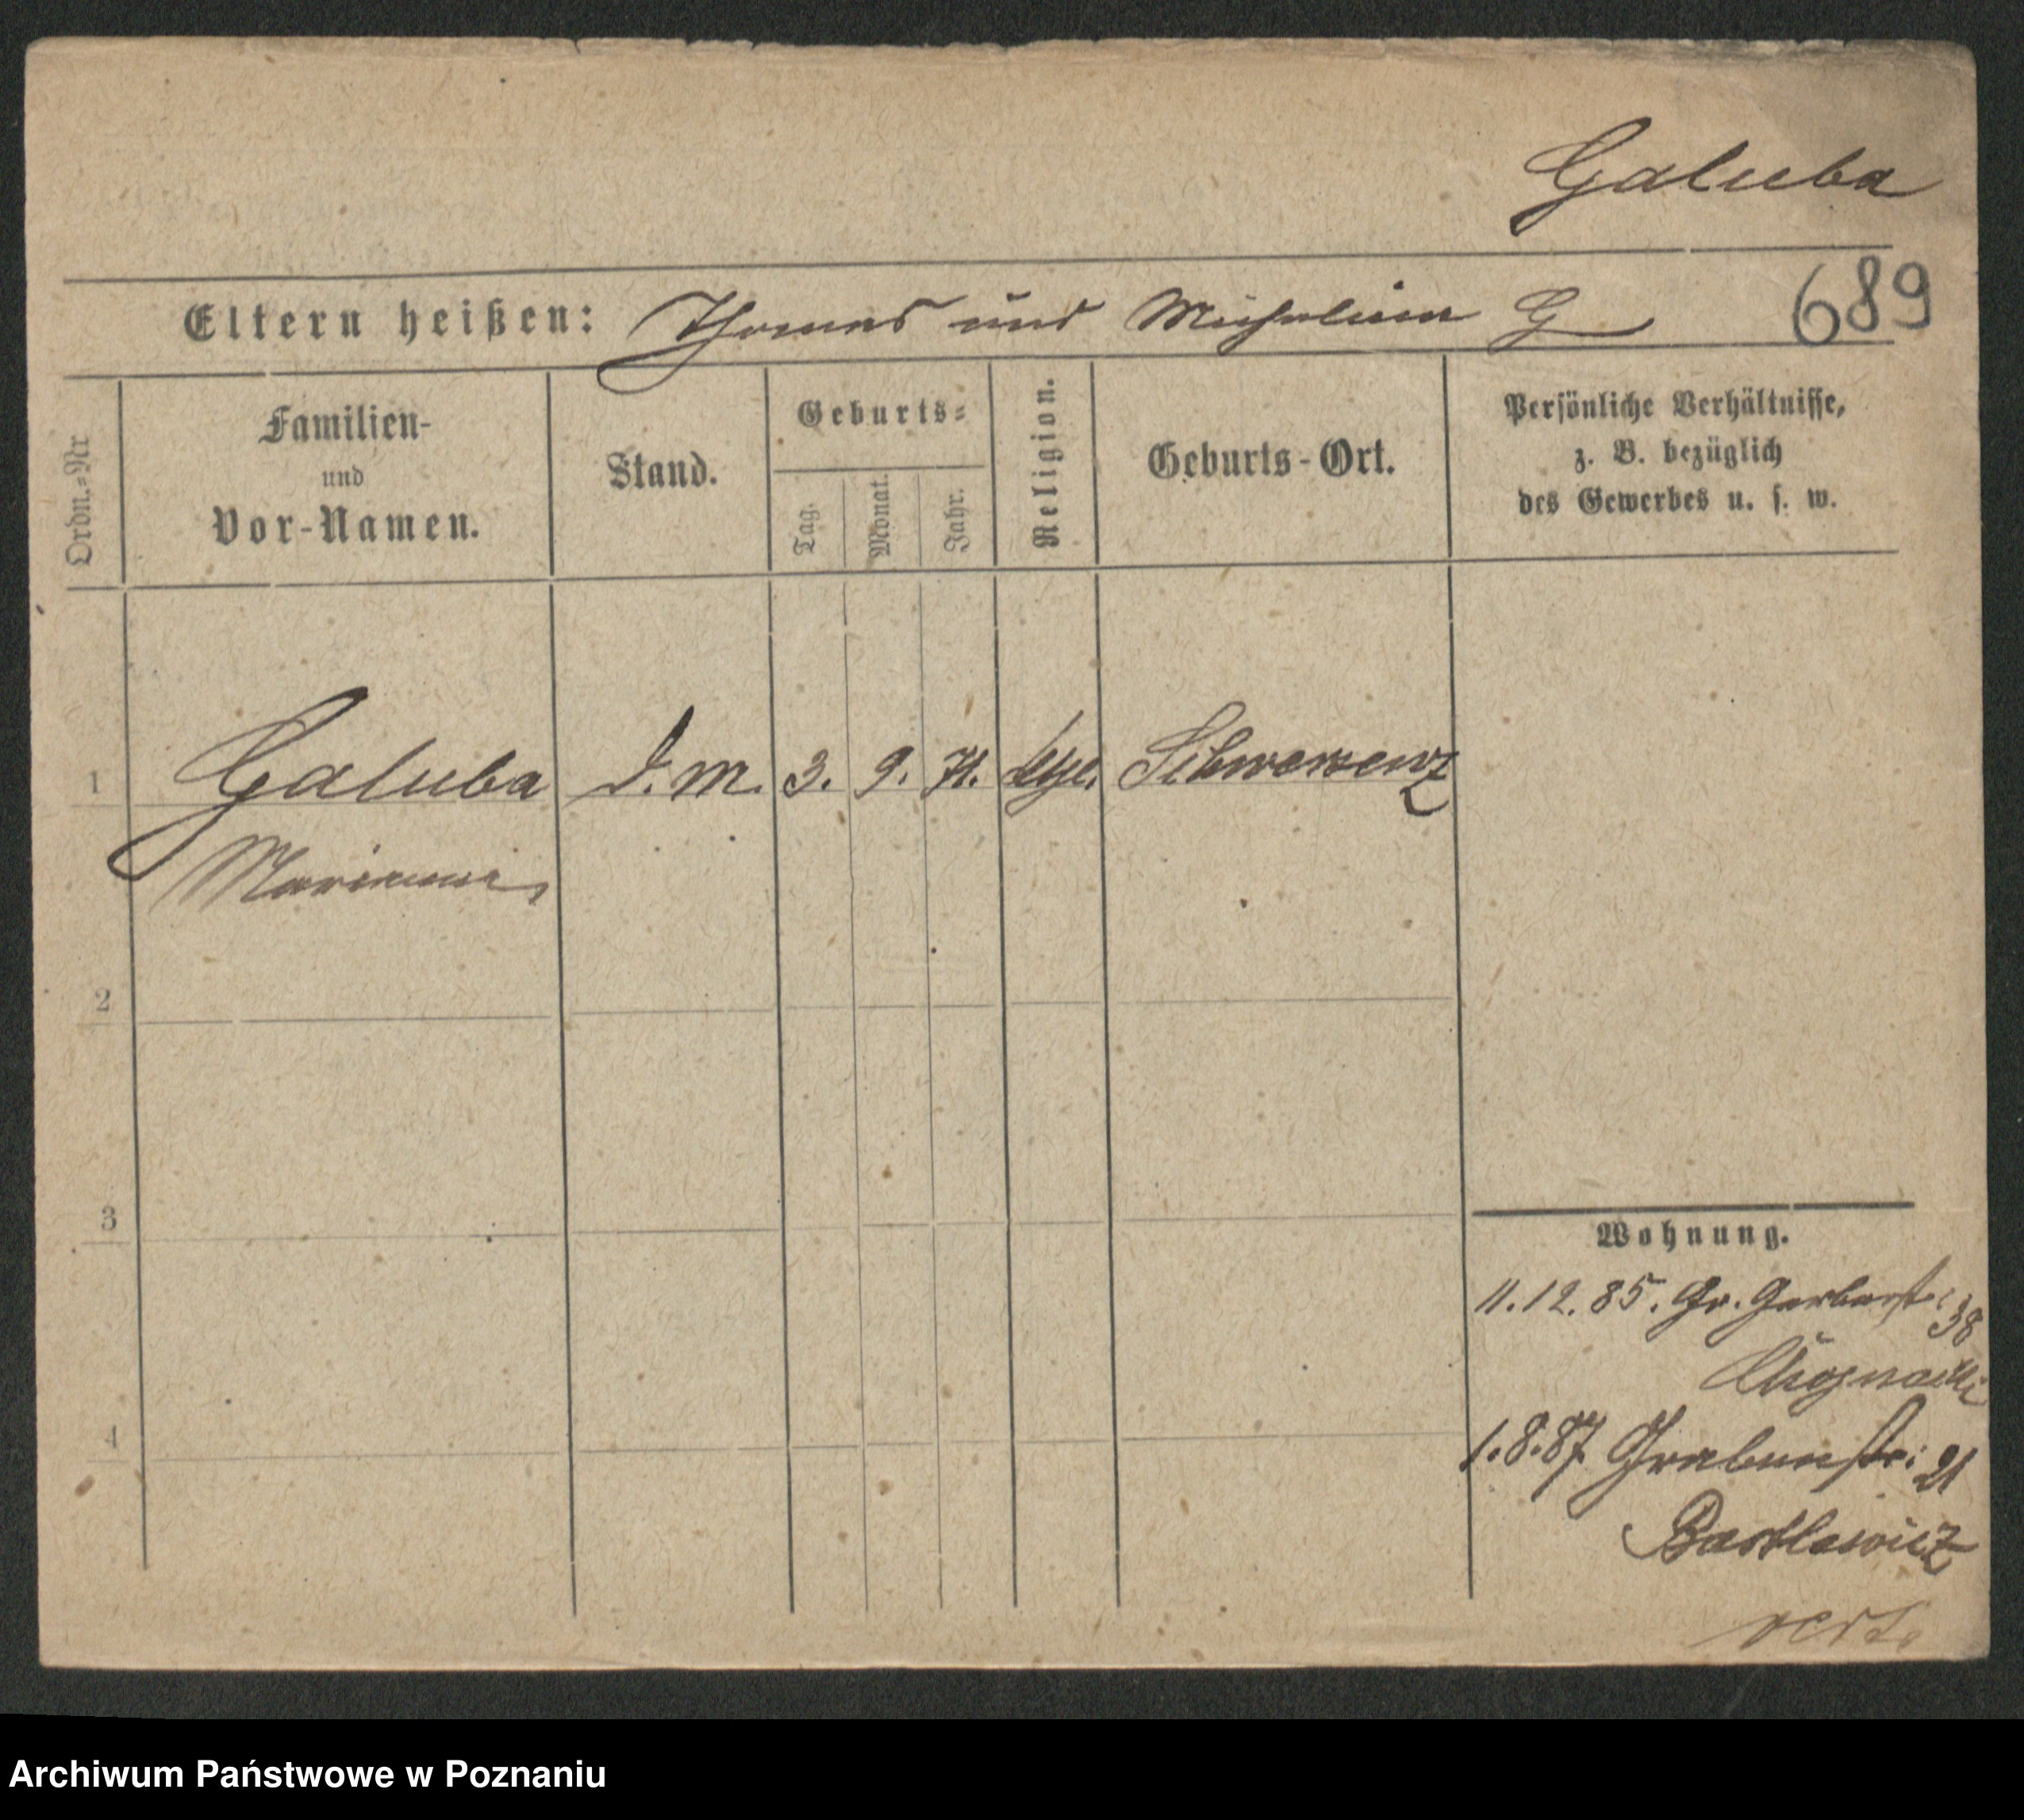 Galuba
689
Eltern heißen: Thomas und Michalina G
Ordn.-Nr
Familien-
und
Vor-Namen.
Stand.
Geburts-
Tag.
Monat.
Jahr.
Religion.
Geburts-Ort.
Persönliche Verhältnisse,
z. B. bezüglich
des Gewerbes u. s. w.
1 Galuba D. M. 3. 9. 71. Schwersenz
Marianna
2
3
4
Wohnung.
11. 12. 85. Gr. Gerberstr: 38
1. 8. 87 Grabenstr: 21
Bartlewicz
Archiwum Państwowe w Poznaniu